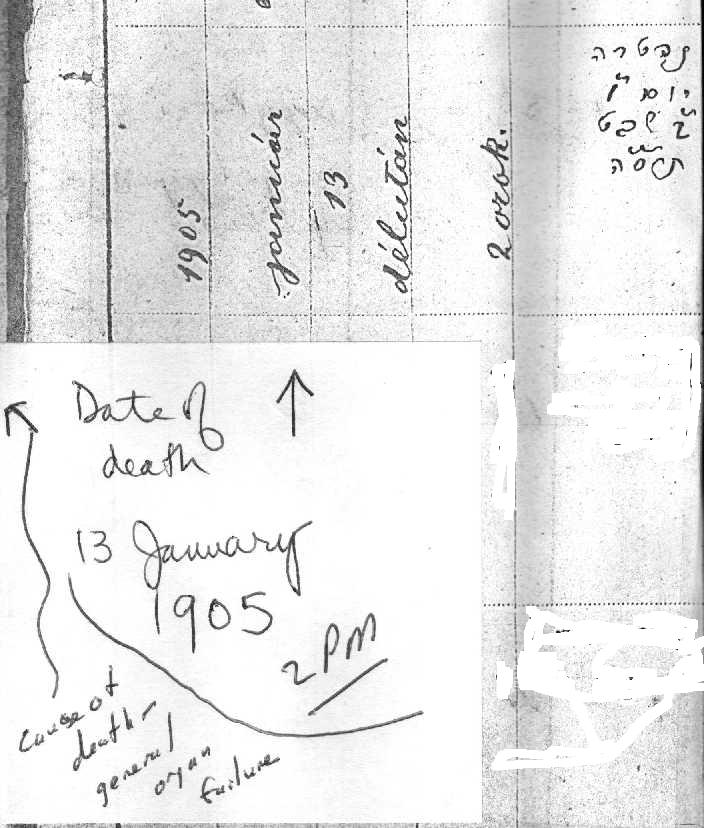 1905
január
13
délután
2 órok.
נפטרה
יום ו'
ז' שבט
תרס"ה
Date of
death
13 January
1905
2 PM
cause of
death -
general
organ
failure